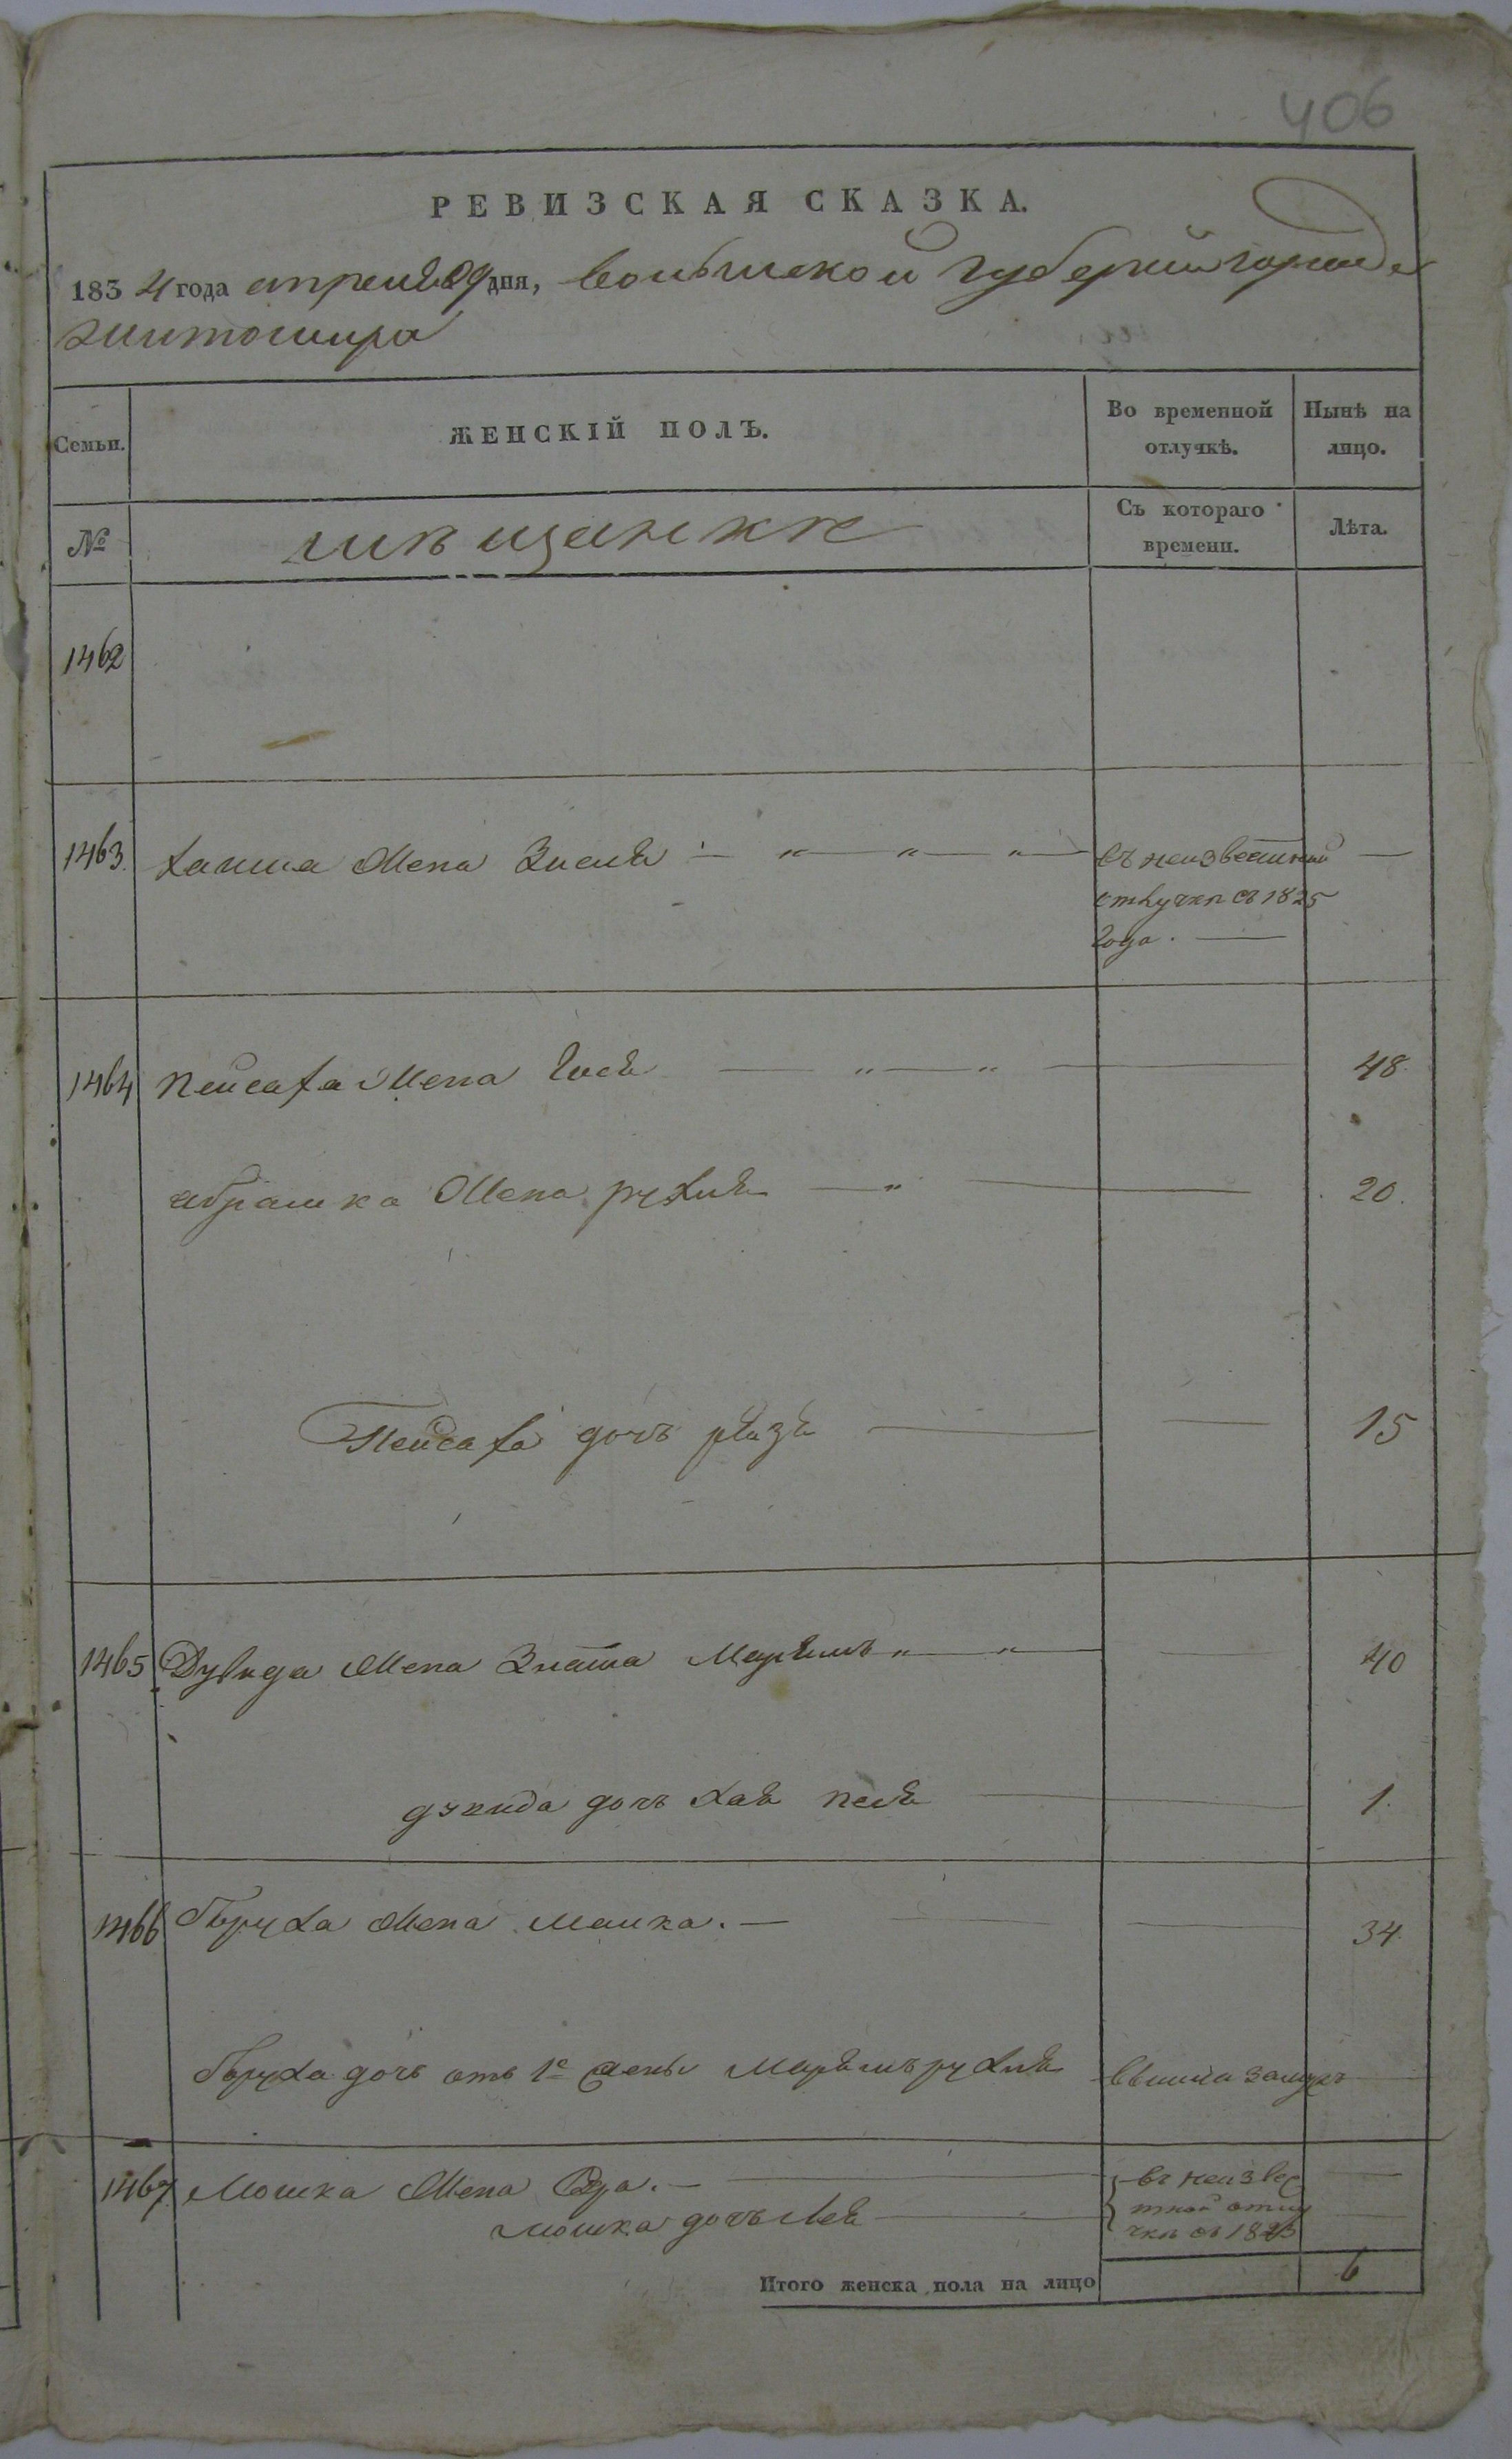 406
РЕВИЗСКАЯ СКАЗКА.
1834 года апреля 29 дня, волынской губернии города
житомира
Семьи. ЖЕНСКІЙ ПОЛЪ. Во временной отлучкѣ. Нынѣ на лицо.
№ мѣщанкѣ Съ котораго времени. Лѣта.
1462
1463. Хаима Жена Зисля — „ — „ — „ — въ неизвестной —
отлучкѣ съ 1825
года. —
1464 Пейсаха Жена Гися — „ — „ — 48.
абрашка Жена рухля — „ — 20.
Пейсаха дочъ рейзя — — 15
1465 Дувида Жена Злата Марямъ „ — „ — — 40
дувида дочъ хая песя — 1.
1466 Боруха Жена малка. — — — 34.
боруха дочь отъ 1й жены Марямъ рухля вышла замужъ —
1467 Мошка Жена Сура. — — въ неизвес —
мошка дочъ лея — тной отлу
чкѣ съ 1823
Итого женска пола на лицо 6